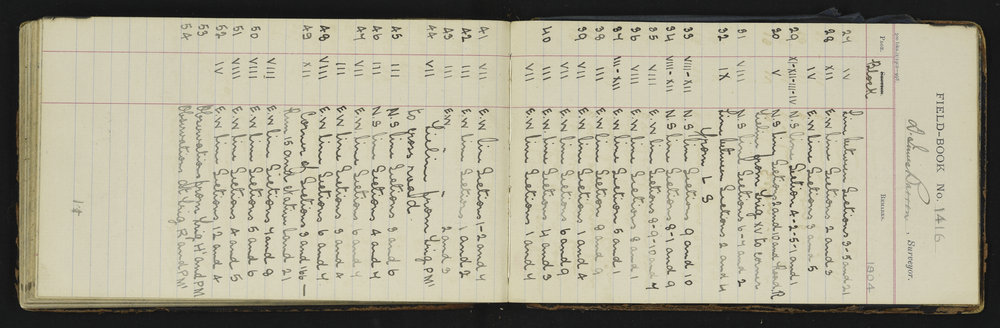 FIELD-BOOK No. 1416
Surveyor.
1904
Page. Remarks.
Block
27 IV Line between Sections 3-5 and 21
28 XII E.W line Sections 2 and 3
IV E.W line Sections 3 and 5
29 XI-XII-III-IV N.S line Section 4-2-5-1 and 1
30 V N.S line Sections 2 and 10 and
from Trig XV to corner
31 VIII N.S line Sections 6-7 and 2
32 IX Line between Sections 2 and 4
from L S
33 VIII-XII N.S line Sections 9 and 10
34 VIII-XII N.S line Sections 8-1 and 9
35 VIII N.S line Sections 8-9-10 and 7
36 VIII E.W line Sections 8 and 1
37 III-XII E.W line Section 5 and 1
38 III E.W line Section 8 and 9
39 VII E.W line Sections 1 and 4
VII E.W line Sections 6 and 9
40 III E.W line Sections 4 and 3
VII E.W line Sections 1 and 4
41 VII E.W line Sections 1-2 and 4
42 III E.W line Sections 1 and 2
43 III E.W " " 2 and 3
44 VII from Trig PM'
to cross road
45 III N.S line Sections 3 and 6
46 III N.S line Sections 6 and 4
47 VII E.W line Sections 6 and 4
III E.W line Sections 3 and 4
48 VIII E.W line Sections 6 and 4
49 XII Corner of Sections 3 and 166 —
15 and 21
50 VIII E.W line Sections 7 and 8
VIII E.W line Sections 5 and 6
51 VIII E.W line Sections 4 and 5
52 IV E.W line Sections 12 and 4
53 Observations from Trig H' and PM'
54 Observation at Trig R' and PM'